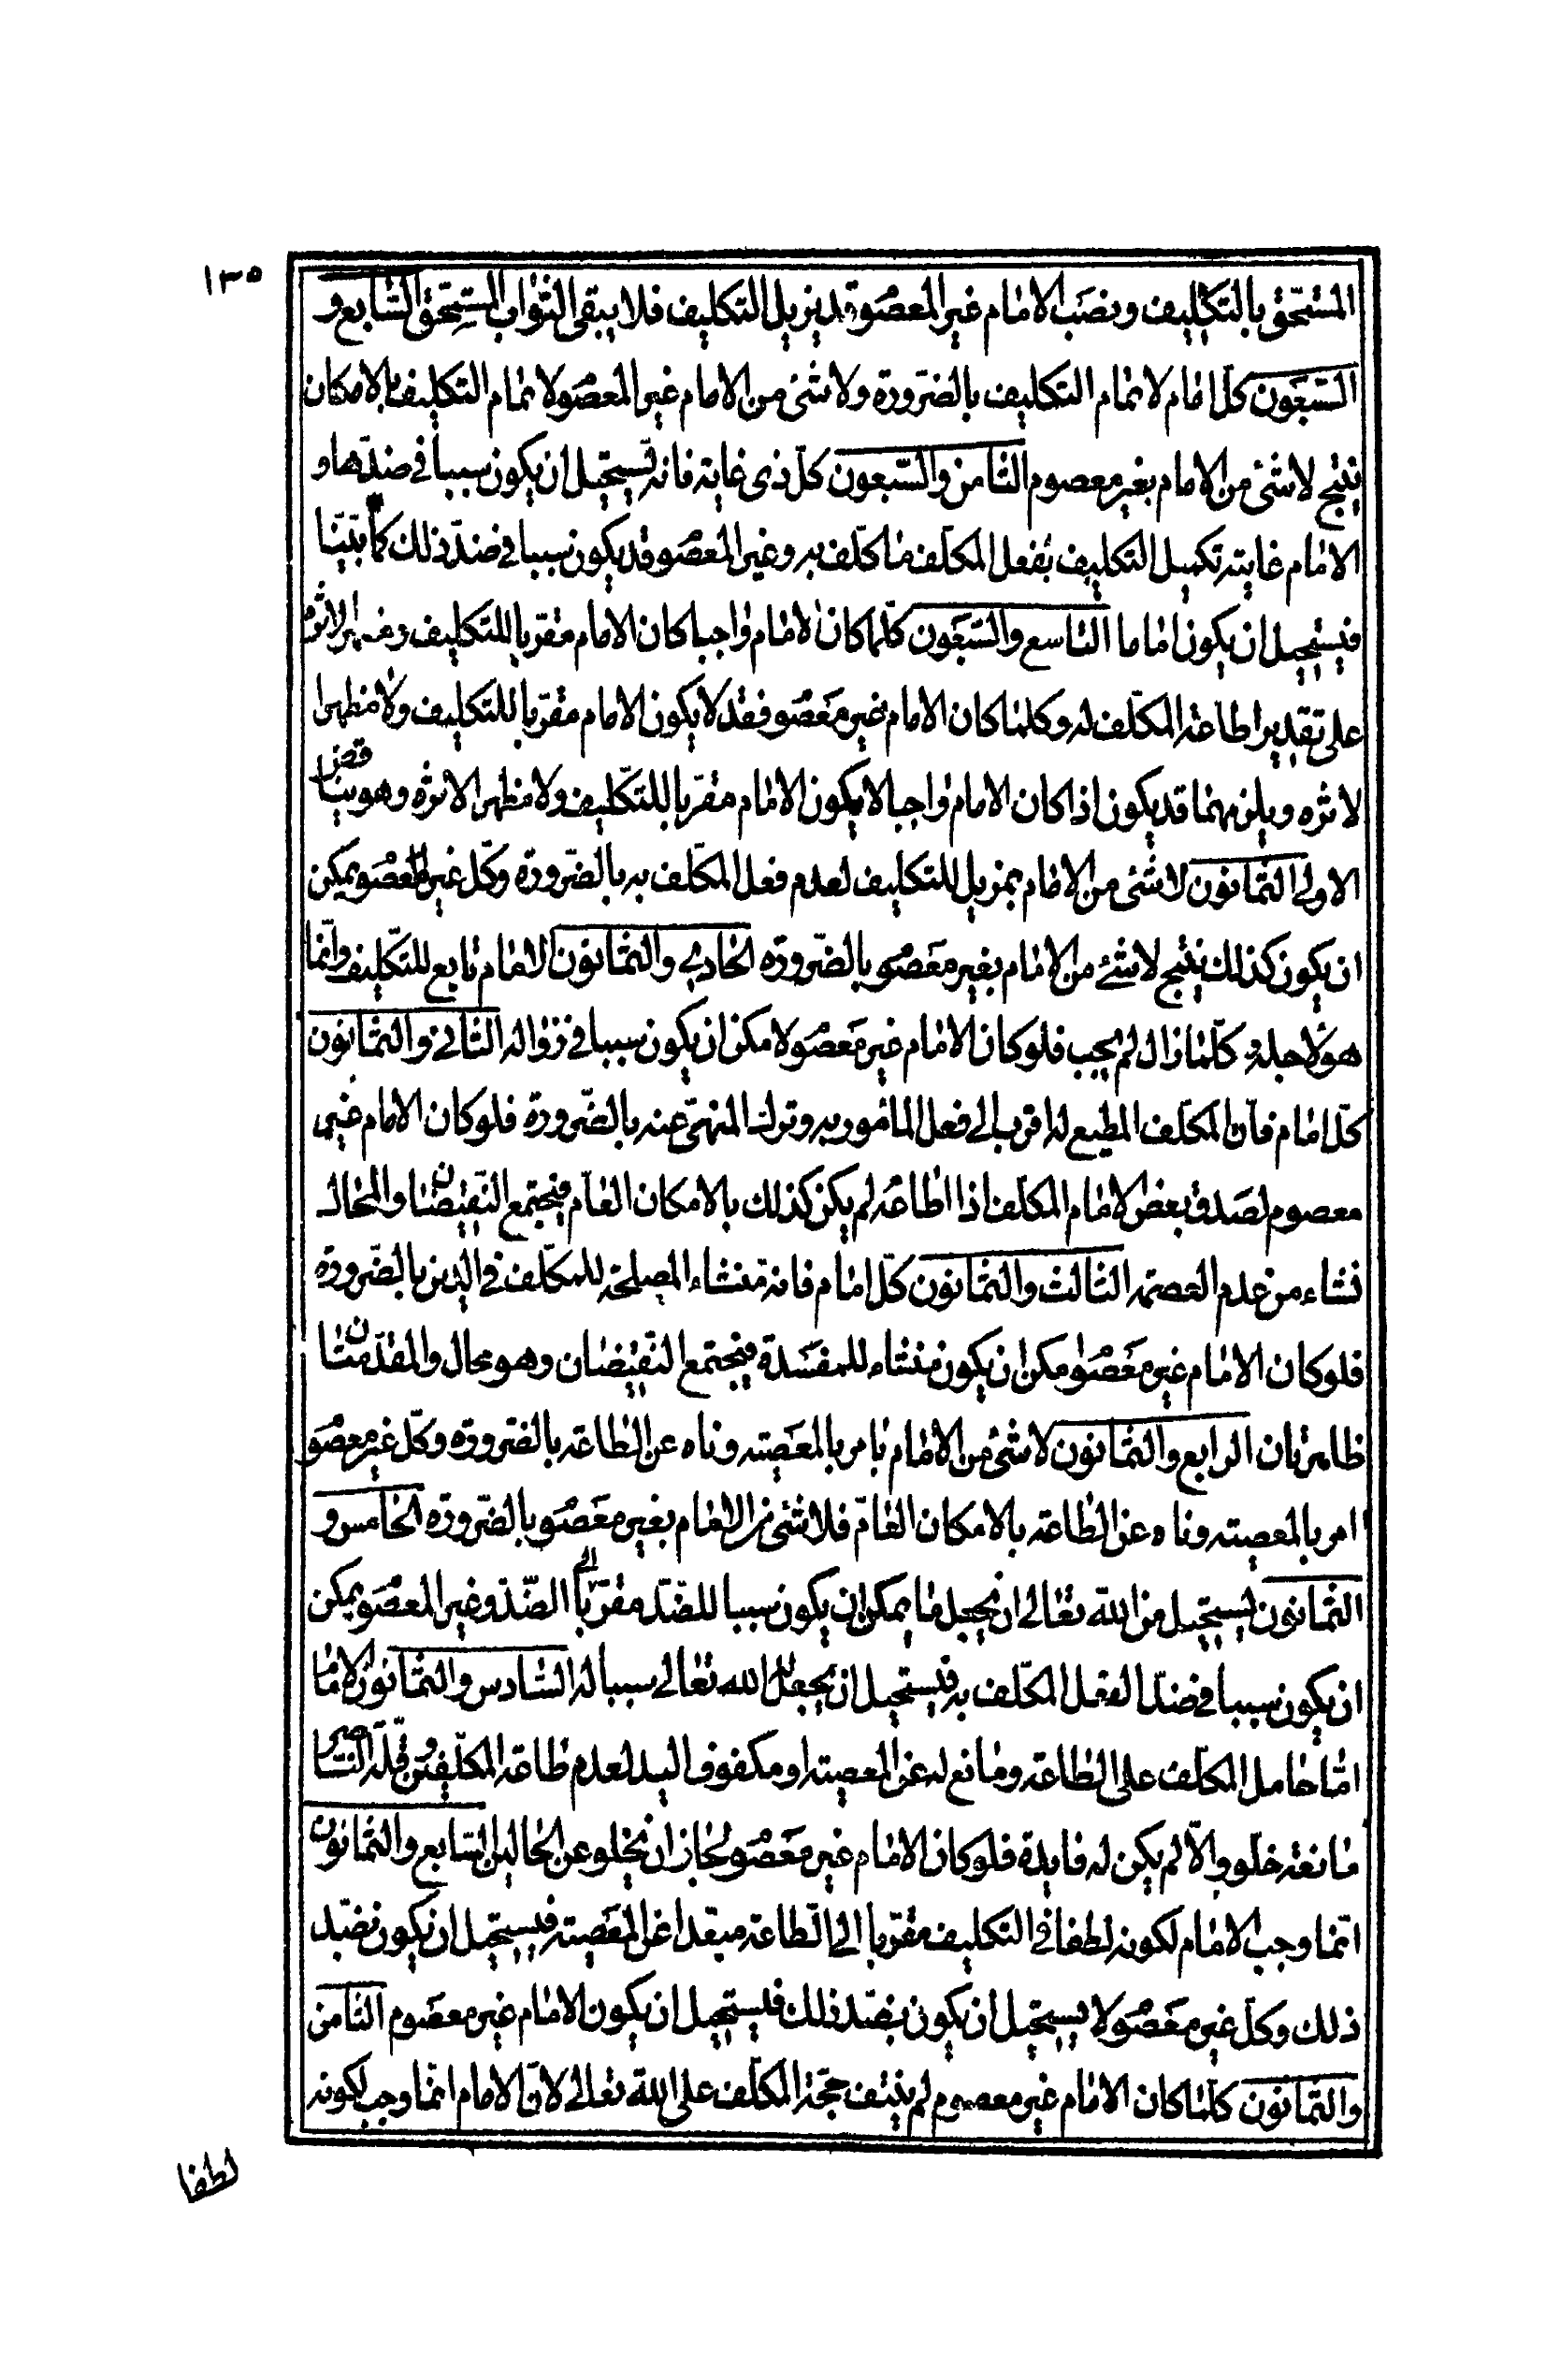 ١٣٥
المستحق بالتكليف ونصب الامام غير المعصوم قد يزيل التكليف فلا يبقى الثواب المستحق السابع و
السبعون كل امام لاتمام التكليف بالضرورة ولا شئ من الامام غير المعصو لاتمام التكليف بالامكان
ينتج لا شئ من الامام بغير معصوم الثامن والسبعون كل ذى غاية فانه يستحيل ان يكون سببا في ضدها و
الامام غايته تكميل التكليف بفعل المكلف ما كلف به وغير المعصو قد يكون سببا في ضد ذلك كما بيّنا
فيستحيل ان يكون اماما التاسع والسبعون كلما كان الامام واجبا كان الامام مقربا للتكليف ومظهرا لاثره
على تقدير اطاعة المكلف له وكلما كان الامام غير معصو فقد لا يكون الامام مقربا للتكليف ولا مظهرا
لاثره ويلزمهما قد يكون اذا كان الامام واجبا لا يكون الامام مقربا للتكليف ولا مظهرا لاثره وهو يناقض
الاولى الثمانون لا شئ من الامام بمزيل للتكليف لعدم فعل المكلف به بالضرورة وكل غير المعصو يمكن
ان يكون كذلك ينتج لا شئ من الامام بغير معصو بالضرورة الحادي والثمانون الامام تابع للتكليف وانما
هو لاجله كلما زال لم يجب فلو كان الامام غير معصو لامكن ان يكون سببا في زواله الثاني والثمانون
كل امام فان المكلف المطيع له اقرب الى فعل المامور به وترك المنهى عنه بالضرورة فلو كان الامام غير
معصوم لصدق بعض الامام المكلف اذا اطاعه لم يكن كذلك بالامكان العام فيجتمع النقيضان والمحال
نشاء من عدم العصمة الثالث والثمانون كل امام فانه منشاء المصلحة للمكلف في الدين بالضرورة
فلو كان الامام غير معصو امكن ان يكون منشاء للمفسدة فيجتمع النقيضان وهو محال والمقدمتان
ظاهرتان الرابع والثمانون لا شئ من الامام بامر بالمعصية وناه عن الطاعة بالضرورة وكل غير معصو
امر بالمعصية وناه عن الطاعة بالامكان العام فلا شئ من الامام بغير معصو بالضرورة الخامس و
الثمانون يستحيل من الله تعالى ان يجعل ما يمكن ان يكون سببا للضد مقربا الى الضد وغير المعصو يمكن
ان يكون سببا في ضد الفعل المكلف به فيستحيل ان يجعل الله تعالى سببا له السادس والثمانون الامام
امّا حامل المكلف على الطاعة ومانع له عن المعصية او مكفوف اليد لعدم طاعة المكلفين وقلة الناصر
مانعة خلو والا لم يكن له فايدة فلو كان الامام غير معصو لجاز ان يخلو عن الحالين السابع والثمانون
انما وجب الامام لكونه لطفا في التكليف مقربا الى الطاعة مبعدا عن المعصية فيستحيل ان يكون بضد
ذلك وكل غير معصو لا يستحيل ان يكون بضد ذلك فيستحيل ان يكون الامام غير معصوم الثامن
والثمانون كلما كان الامام غير معصوم لم ينتف حجة المكلف على الله تعالى لان الامام انما وجب لكونه
لطفا